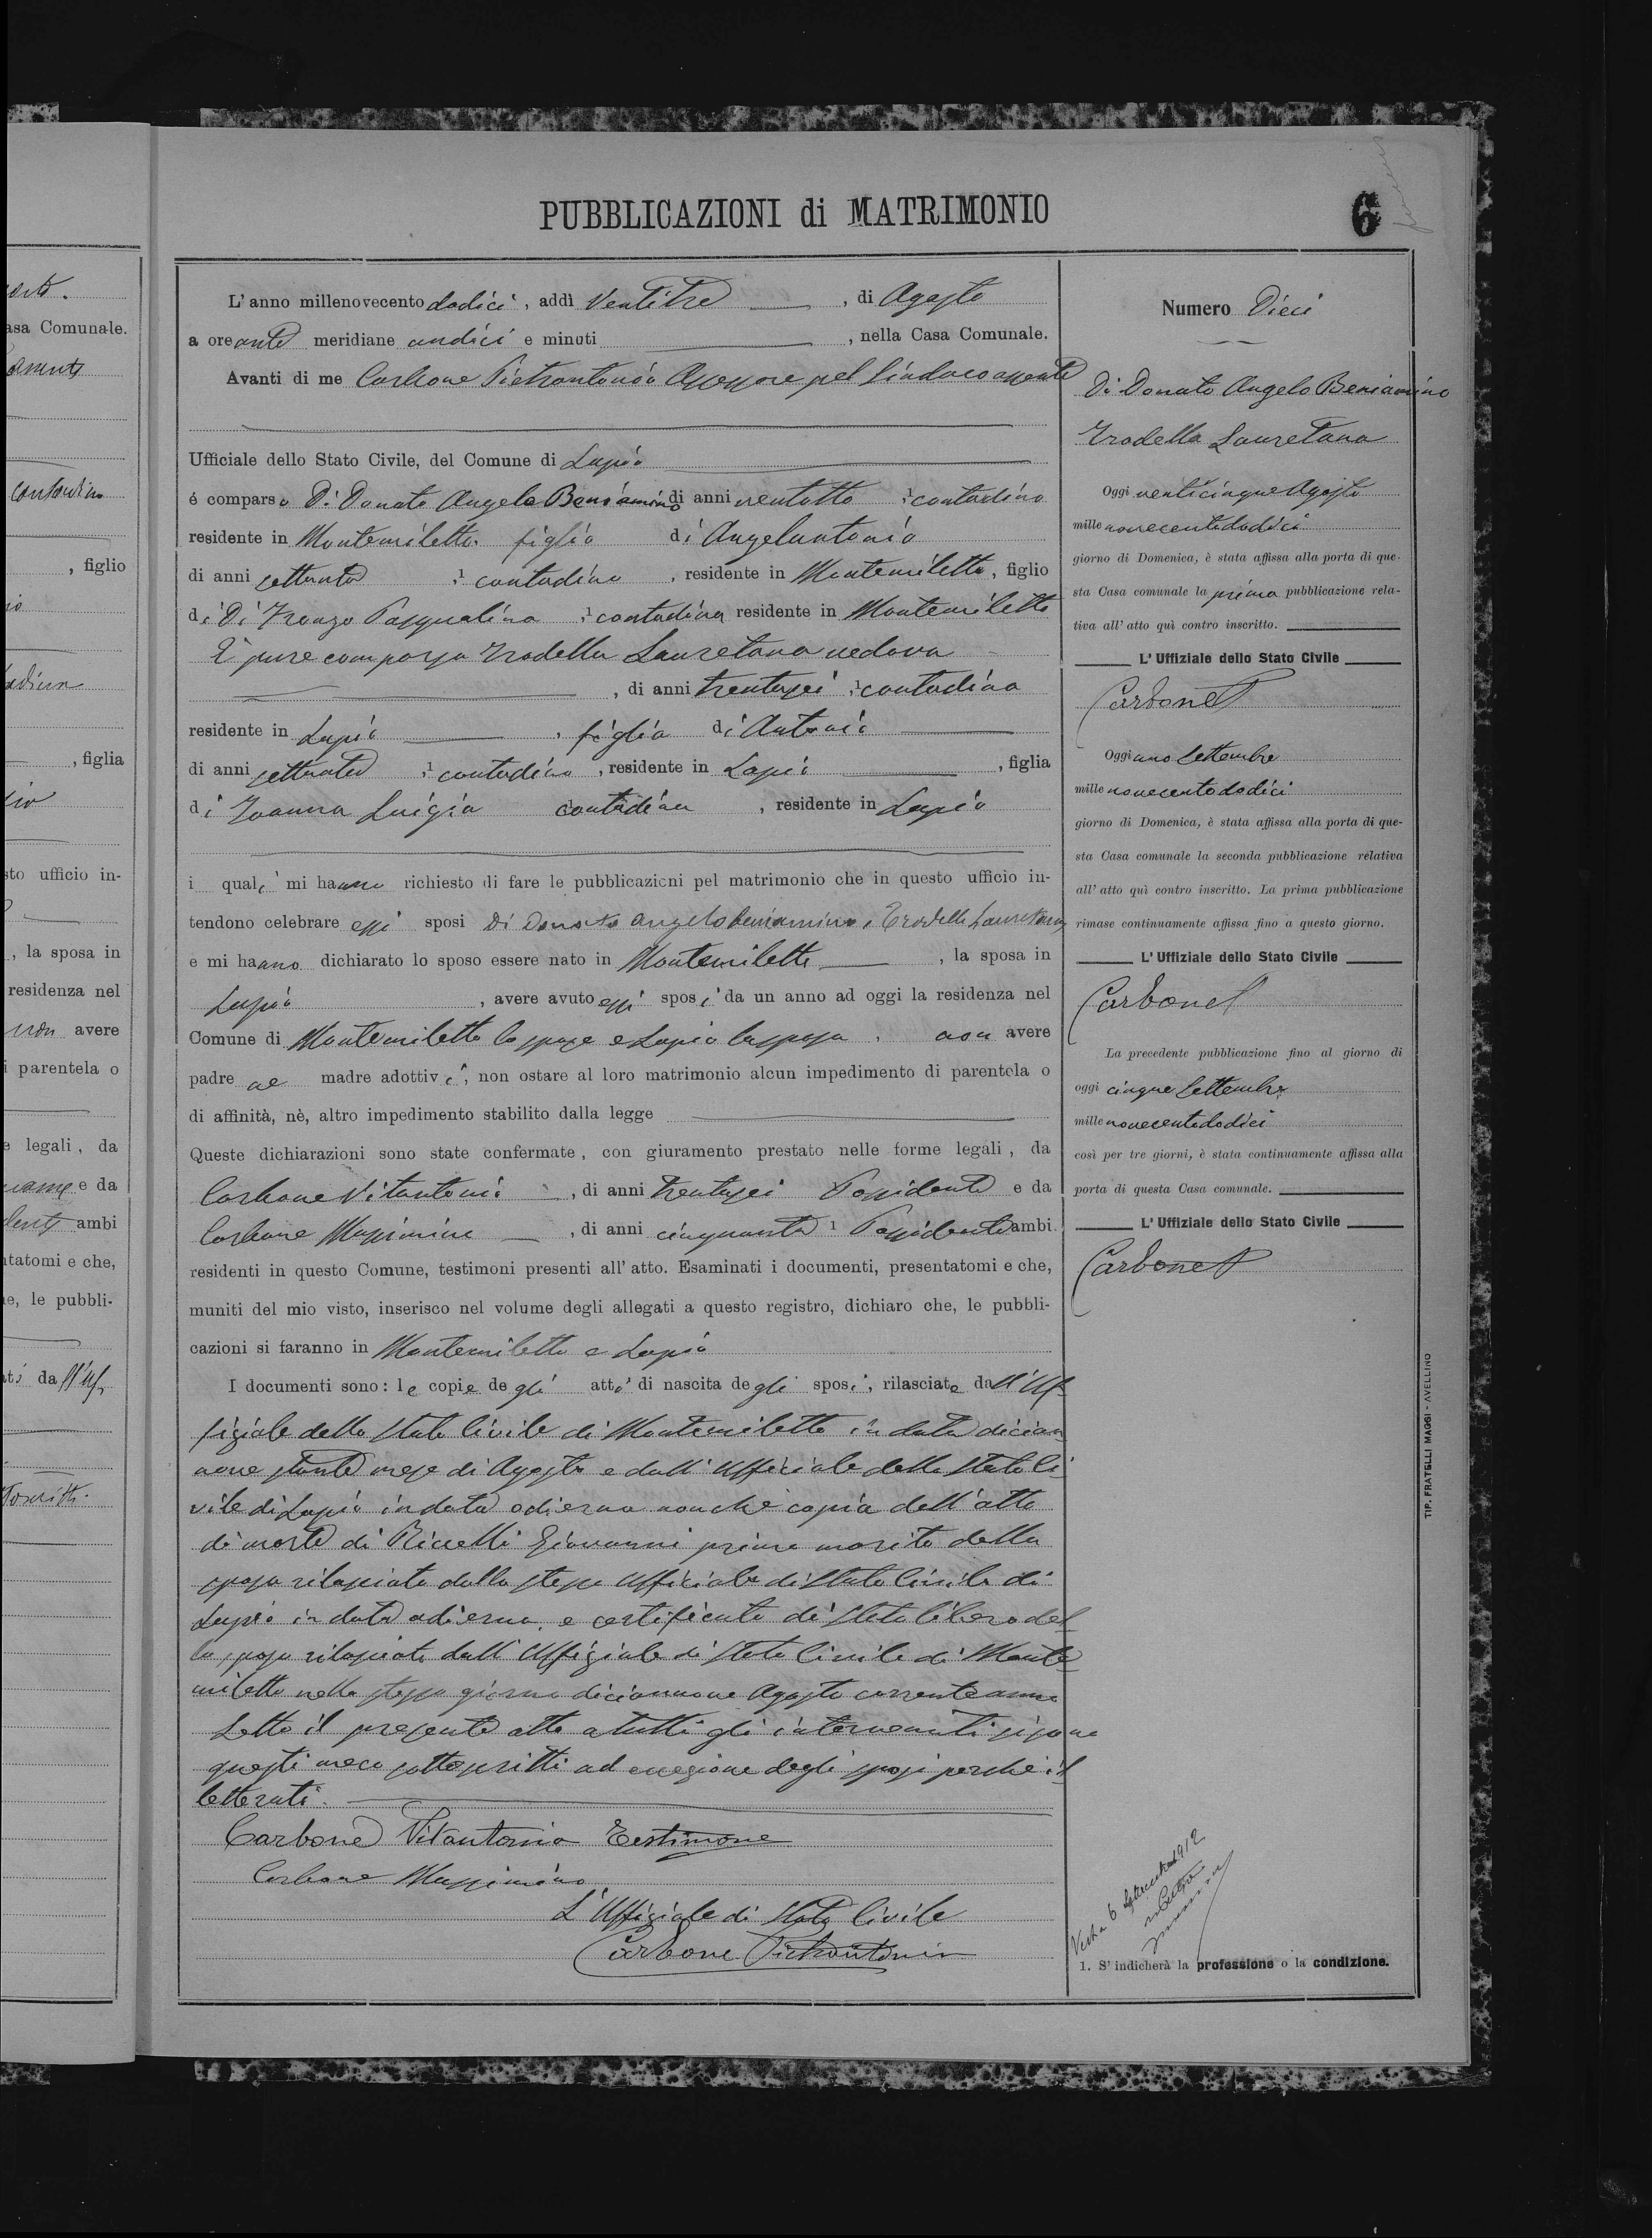 PUBBLICAZIONI di MATRIMONIO
6
L' anno millenovecento dodici, addì Ventitre, di Agosto
a ore ante meridiane undici e minuti, nella Casa Comunale.
Avanti di me Carbone Pietrantonio Assessore pel Sindaco assente
Ufficiale dello Stato Civile, del Comune di Lapio
é comparso Di Donato Angelo Beniamino di anni ventotto, 1 contadino
residente in Montemiletto figlio di Angelantonio
di anni settanta, 1 contadino, residente in Montemiletto, figlio
di Di Pasqualina, 1 contadina residente in Montemiletto
È pure comparsa Trodella Lauretana vedova
, di anni trentasei, 1 contadina
residente in Lapio, figlia di Antonio
di anni settanta, 1 contadino, residente in Lapio, figlia
di Luigia contadina, residente in Lapio
i quali mi hanno richiesto di fare le pubblicazioni pel matrimonio che in questo ufficio in-
tendono celebrare essi sposi Di Donato Angelo Beniamino e Trodella Lauretana
e mi hanno dichiarato lo sposo essere nato in Montemiletto, la sposa in
Lapio, avere avuto essi sposi da un anno ad oggi la residenza nel
Comune di Montemiletto lo sposo e Lapio la sposa, non avere
padre ne madre adottivi, non ostare al loro matrimonio alcun impedimento di parentela o
di affinità, nè, altro impedimento stabilito dalla legge
Queste dichiarazioni sono state confermate, con giuramento prestato nelle forme legali, da
Carbone Vitantonio, di anni trentasei Possidente e da
Carbone Massimino, di anni cinquanta 1 Possidente ambi
residenti in questo Comune, testimoni presenti all' atto. Esaminati i documenti, presentatomi e che,
muniti del mio visto, inserisco nel volume degli allegati a questo registro, dichiaro che, le pubbli-
cazioni si faranno in Montemiletto e Lapio
I documenti sono: le copie degli atti di nascita degli sposi, rilasciate dall'Uf-
fiziale dello Stato Civile di Montemiletto in data dician
nove stante mese di Agosto e dall'Ufficiale dello Stato Ci
vile di Lapio in data odierna nonchè copia dell'atto
di morte di Riccelli Giovanni primo marito della
sposa rilasciata dallo stesso Ufficiale di Stato Civile di
Lapio in data odierna, e certificato di Stato libero del
lo sposo rilasciato dall'Uffiziale di Stato Civile di Monte
miletto nello stesso giorno diciannove Agosto corrente anno
Letto il presente atto a tutti gli intervenuti si sono
questi meco sottoscritti ad eccezione degli sposi perchè il
letterati.
Carbone Vitantonio Testimone
Carbone Massimino
L'Uffiziale di Stato Civile
Carbone Pietrantonio
Numero Dieci
Di Donato Angelo Beniamino
Trodella Lauretana
Oggi venticinque Agosto
mille novecentododici
giorno di Domenica, è stata affissa alla porta di que-
sta Casa comunale la prima pubblicazione rela-
tiva all' atto quì contro inscritto.
L' Uffiziale dello Stato Civile
Carbone P
Oggi uno Settembre
mille novecentododici
giorno di Domenica, è stata affissa alla porta di que-
sta Casa comunale la seconda pubblicazione relativa
all' atto quì contro inscritto. La prima pubblicazione
rimase continuamente affissa fino a questo giorno.
L' Uffiziale dello Stato Civile
Carbone P
La precedente pubblicazione fino al giorno di
oggi cinque Settembre
mille novecentododici
così per tre giorni, è stata continuamente affissa alla
porta di questa Casa comunale.
L' Uffiziale dello Stato Civile
Carbone P
1912
1. S' indicherà la professione o la condizione.
TIP. FRATELLI MAGGI - AVELLINO
asa Comunale.
contadino
, figlio
, figlia
sto ufficio in-
, la sposa in
residenza nel
non avere
i parentela o
e legali, da
e da
ambi
ntatomi e che,
ne, le pubbli-
da ll'Uf